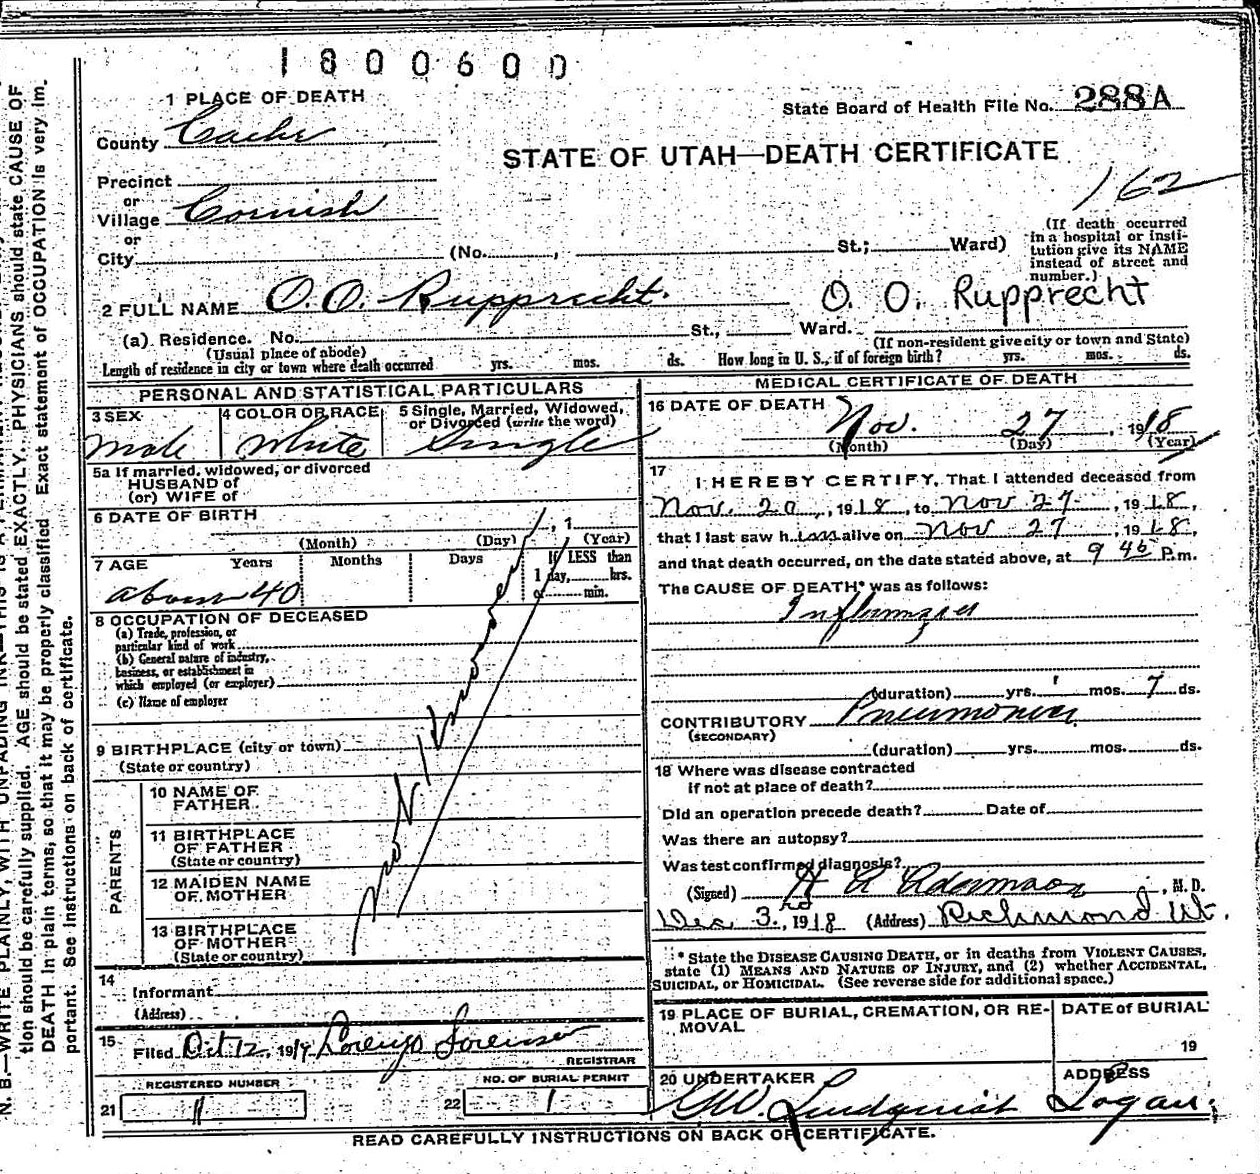 1800600
1 PLACE OF DEATH
State Board of Health File No. 288A
County Cache
STATE OF UTAH—DEATH CERTIFICATE
162
Precinct
or
Village Cornish
or
City (No. , St.; Ward)
(If death occurred
in a hospital or insti-
tution give its NAME
instead of street and
number.)
2 FULL NAME O. O. Rupprecht. O. O. Rupprecht
(a) Residence. No. St., Ward.
(Usual place of abode) (If non-resident give city or town and State)
Length of residence in city or town where death occurred yrs. mos. ds. How long in U. S., if of foreign birth? yrs. mos. ds.
PERSONAL AND STATISTICAL PARTICULARS
3 SEX 4 COLOR OR RACE 5 Single, Married, Widowed,
or Divorced (write the word)
Male White Single
5a If married, widowed, or divorced
HUSBAND of
(or) WIFE of
6 DATE OF BIRTH , 1
(Month) (Day) (Year)
7 AGE Years Months Days If LESS than
1 day, hrs.
or min.
about 40
8 OCCUPATION OF DECEASED
(a) Trade, profession, or
particular kind of work
(b) General nature of industry,
business, or establishment in
which employed (or employer)
(c) Name of employer
9 BIRTHPLACE (city or town)
(State or country)
not known
PARENTS
10 NAME OF
FATHER
11 BIRTHPLACE
OF FATHER
(State or country)
12 MAIDEN NAME
OF MOTHER
13 BIRTHPLACE
OF MOTHER
(State or country)
14
Informant
(Address)
15
Filed Oct 12, 1919 Lorenzo Sorensen
REGISTRAR
REGISTERED NUMBER
21 11
NO. OF BURIAL PERMIT
22 1
MEDICAL CERTIFICATE OF DEATH
16 DATE OF DEATH
Nov. 27, 1918
(Month) (Day) (Year)
17
I HEREBY CERTIFY, That I attended deceased from
Nov. 20, 1918, to Nov 27, 1918,
that I last saw him alive on Nov 27, 1918,
and that death occurred, on the date stated above, at 9 45 P.m.
The CAUSE OF DEATH* was as follows:
Influenza
(duration) yrs. mos. 7 ds.
CONTRIBUTORY Pneumonia
(SECONDARY)
(duration) yrs. mos. ds.
18 Where was disease contracted
if not at place of death?
Did an operation precede death? Date of
Was there an autopsy?
Was test confirmed diagnosis?
(Signed) H A Adamson, M. D.
Dec 3rd, 1918 (Address) Richmond Ut.
* State the DISEASE CAUSING DEATH, or in deaths from VIOLENT CAUSES,
state (1) MEANS AND NATURE OF INJURY, and (2) whether ACCIDENTAL,
SUICIDAL, or HOMICIDAL. (See reverse side for additional space.)
19 PLACE OF BURIAL, CREMATION, OR RE-
MOVAL
DATE of BURIAL
19
20 UNDERTAKER
G.W. Lindquist
ADDRESS
Logan.
READ CAREFULLY INSTRUCTIONS ON BACK OF CERTIFICATE.
N. B.—WRITE PLAINLY, WITH UNFADING INK—THIS IS A PERMANENT
tion should be carefully supplied. AGE should be stated EXACTLY. PHYSICIANS should state CAUSE OF
DEATH in plain terms, so that it may be properly classified. Exact statement of OCCUPATION is very im-
portant. See instructions on back of certificate.